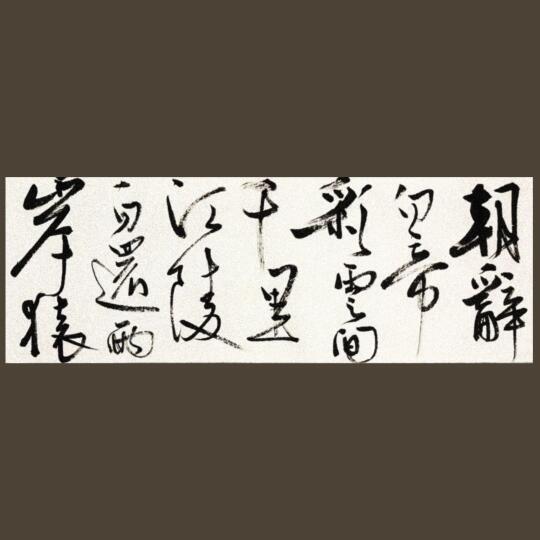 朝辭
白帝
彩雲間
千里
江陵
一日還兩
岸猿